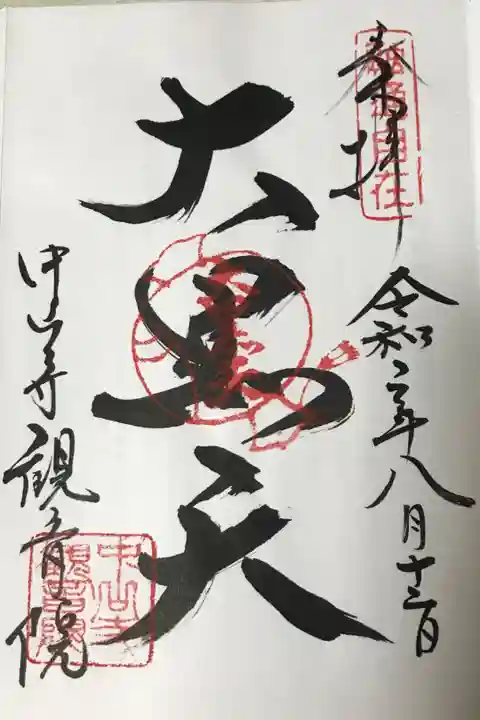 奉拝
令和二年八月十三日
大黒天
中山寺観音院
中山寺
観音院